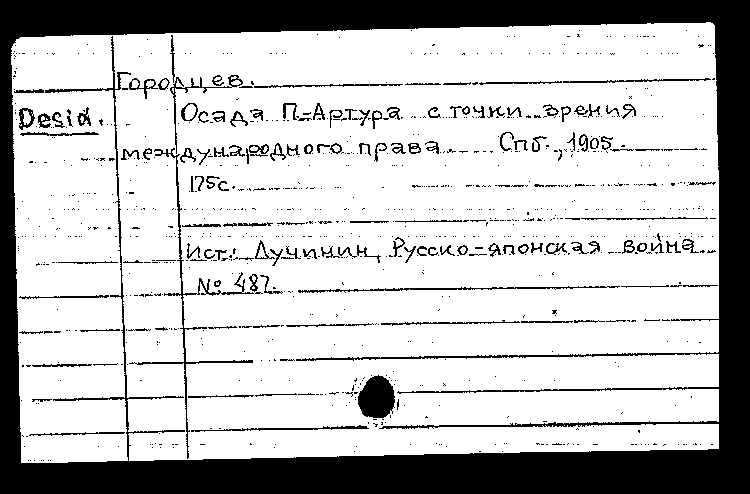 Городцев.
Desid. Осада П-Артура с точки зрения
международного права. Спб., 1905.
175с.
Ист.: Лучинин, Русско-японская война
№ 487.